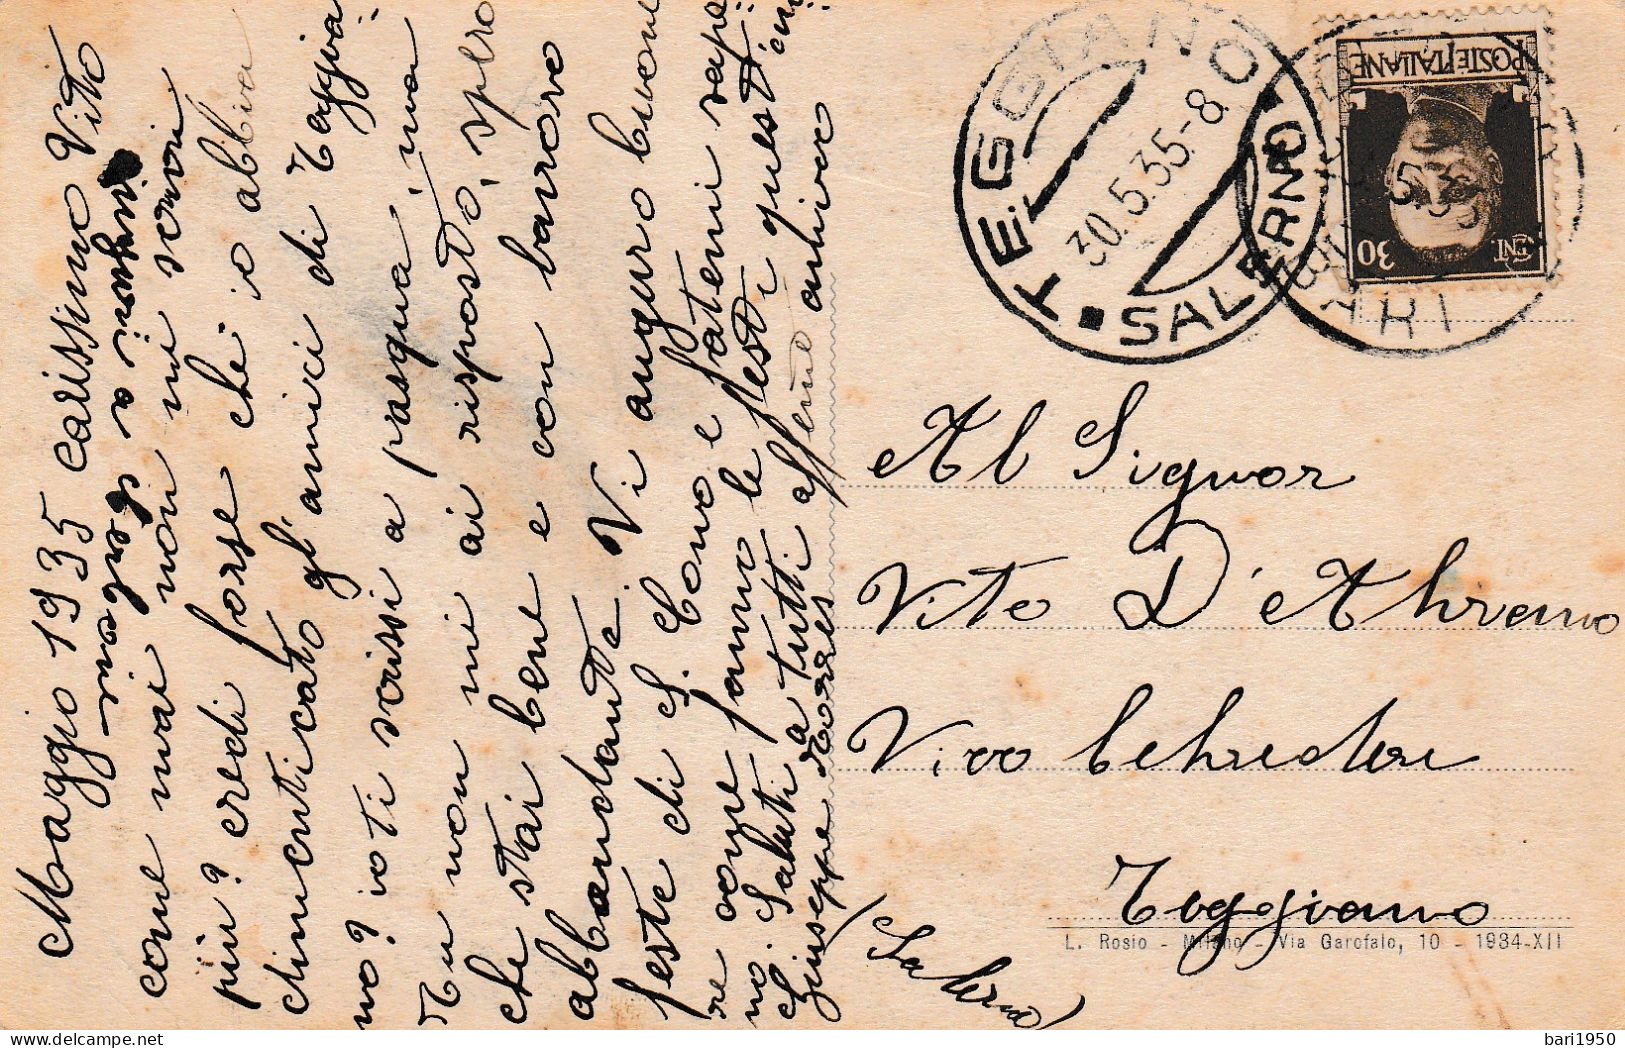 Maggio 1935 carissimo Vito
come mai non mi scrivi
più? credi forse che io abbia
dimenticato gl'amici di Teggia=
no? io ti scrissi a pasqua, ma
Tu non mi ai risposto, spero
che stai bene e con lavoro
abbandante. Vi auguro buone
feste di S. Cono e fatemi sape=
re come fanno le feste quest'an=
no. Saluti a tutti affettuo
Giuseppe
TEGGIANO
30.5.35-8.
SALERNO
POSTE ITALIANE
CENT. 30
BARI
Al Signor
Vito D'Ahremo
Vico
Teggiano
(Salerno)
L. Rosio - Milano - Via Garofalo, 10 - 1934-XII
bari1950